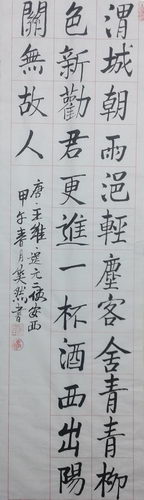 渭城朝雨浥輕塵客舍青青柳
色新勸君更進一杯酒西出陽
關無故人
唐·王維·送元二使安西
甲午春月奠然書